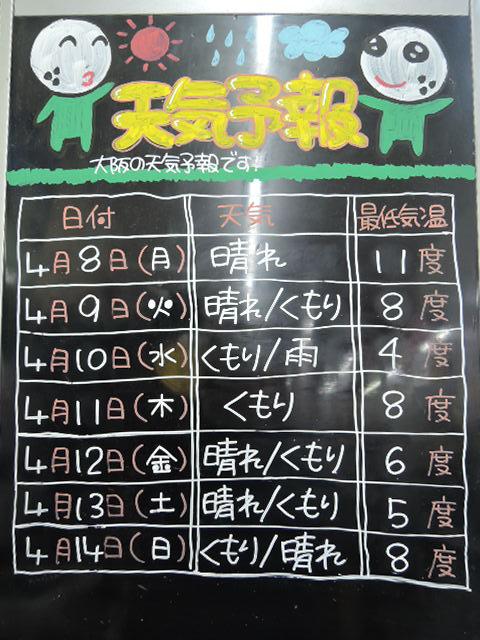 天気予報
大阪の天気予報です!
日付 天気 最低気温
4月8日(月) 晴れ 11度
4月9日(火) 晴れ/くもり 8度
4月10日(水) くもり/雨 4度
4月11日(木) くもり 8度
4月12日(金) 晴れ/くもり 6度
4月13日(土) 晴れ/くもり 5度
4月14日(日) くもり/晴れ 8度